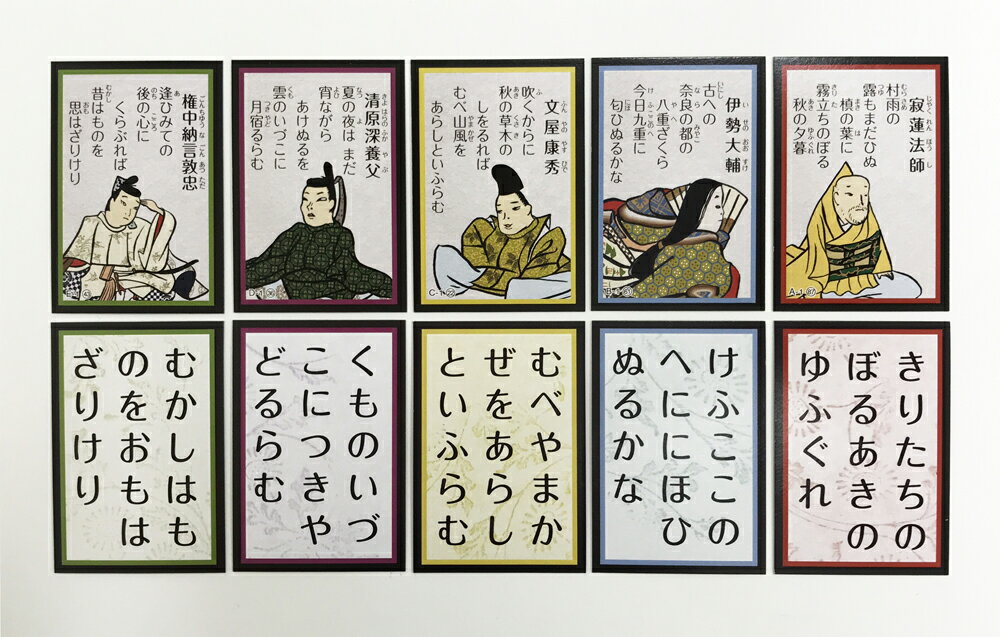 寂蓮法師
村雨の
露もまだひぬ
槙の葉に
霧立ちのぼる
秋の夕暮
A-1 87
伊勢大輔
古への
奈良の都の
八重ざくら
今日九重に
匂ひぬるかな
B-1 61
文屋康秀
吹くからに
秋の草木の
しをるれば
むべ山風を
あらしといふらむ
C-1 ㉒
清原深養父
夏の夜は まだ
宵ながら
あけぬるを
雲のいづこに
月宿るらむ
D-1 ㊱
権中納言敦忠
逢ひみての
後の心に
くらぶれば
昔はものを
思はざりけり
E-1 ㊸
きりたちの
ぼるあきの
ゆふぐれ
けふここの
へににほひ
ぬるかな
むべやまか
ぜをあらし
といふらむ
くものいづ
こにつきや
どるらむ
むかしはも
のをおもは
ざりけり